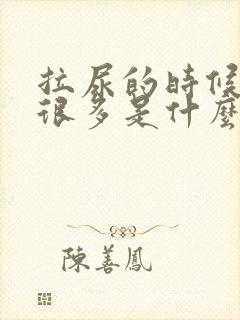 拉尿的時候
很多是什麼
陳善鳳